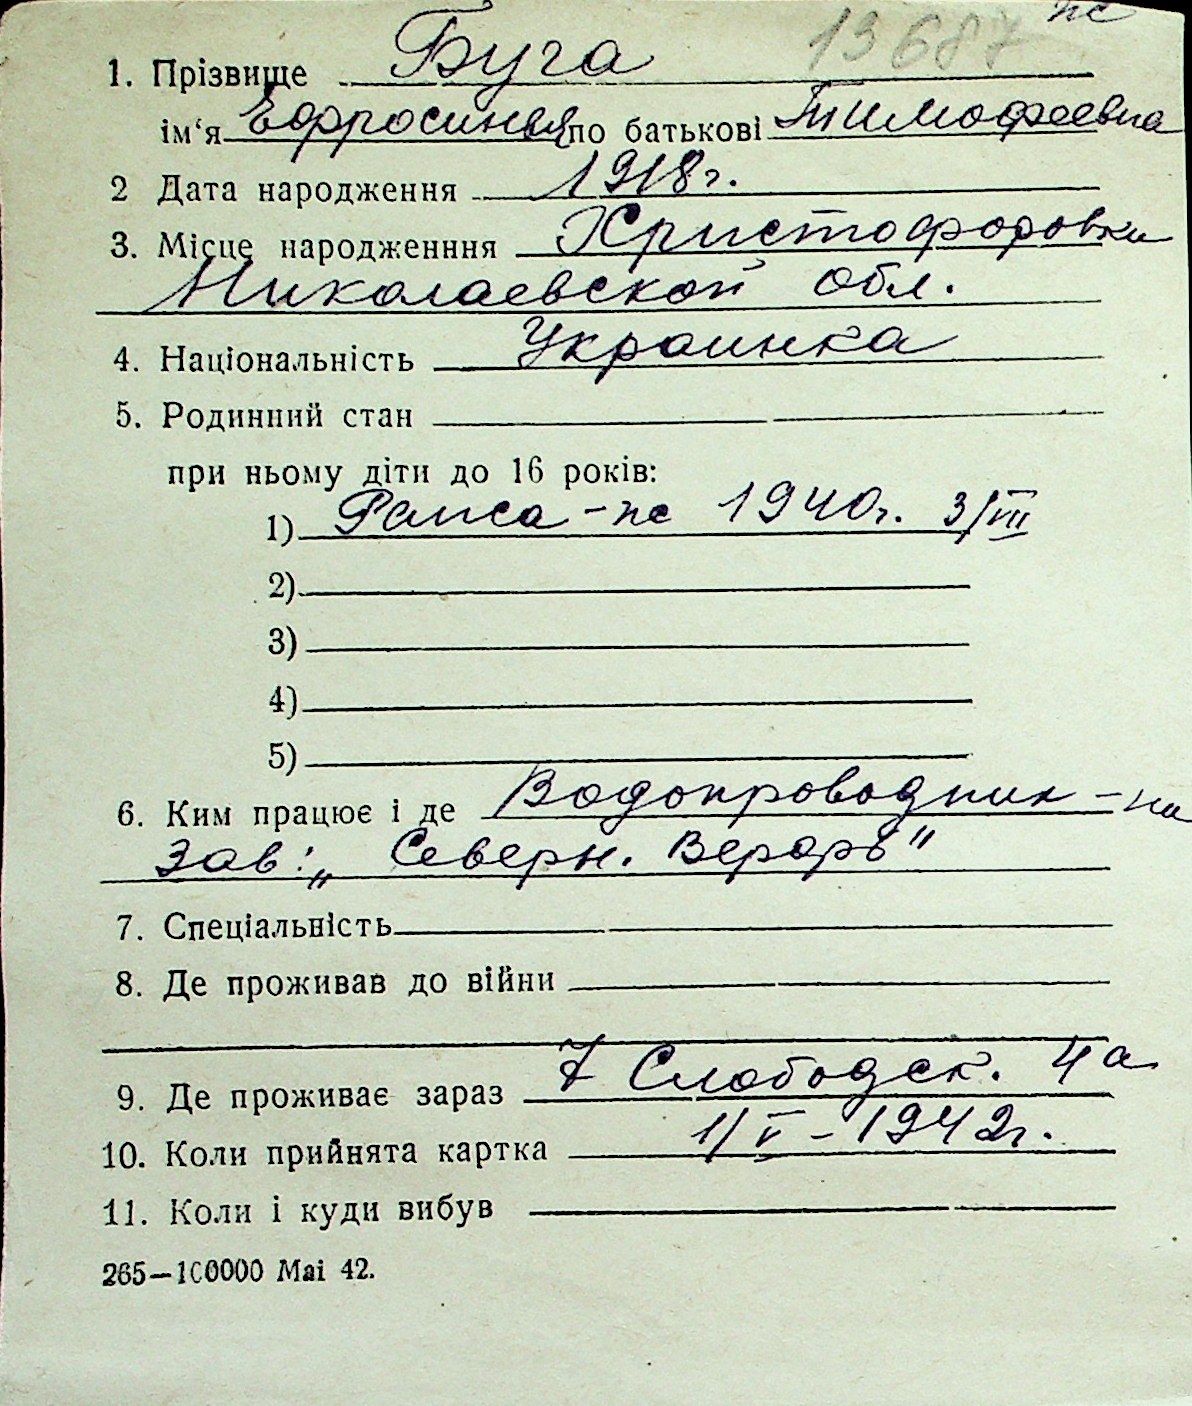 13687 пс
1. Прізвище Буга
ім‘я Ефросинья по батькові Тимофеевна
2 Дата народження 1918г.
3. Місце народженння Христофоровки
Николаевской обл.
4. Національність Украинка
5. Родинний стан
при ньому діти до 16 років:
1) Раиса - пс 1940г. 3/VII
2)
3)
4)
5)
6. Ким працює і де Водопроводчик - на
Зав: „ Северн. Верфь"
7. Спеціальність
8. Де проживав до війни
9. Де проживає зараз 7 Слободск. 4а
10. Коли прийнята картка 1/V - 1942г.
11. Коли і куди вибув
265—100000 Mai 42.